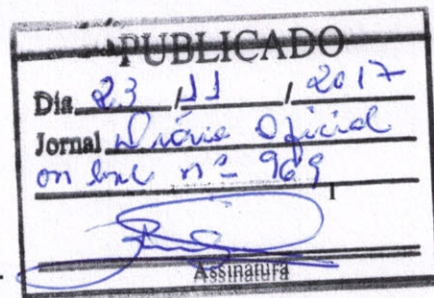 PUBLICADO
Dia 23 / 11 / 2017
Jornal Diário Oficial
on line nº 969
Assinatura